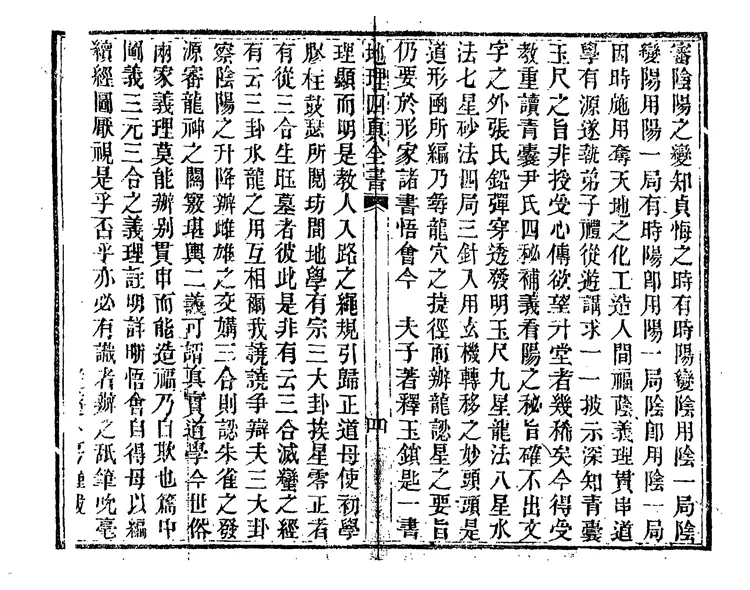 審陰陽之變知貞悔之時有時陽變陰用陰一局陰
變陽用陽一局有時陽卽用陽一局陰卽用陰一局
因時施用奪天地之化工造人間福蔭義理貫串道
學有源遂執弟子禮從遊講求一一披示深知青囊
玉尺之旨非授受心傳欲望升堂者幾稀矣今得受
教重讀青囊尹氏四秘補義看陽之秘旨確不出文
字之外張氏鉛彈穿透發明玉尺九星龍法八星水
法七星砂法四局三針入用玄機轉移之妙頭頭是
道形函所編乃尋龍穴之捷徑而辦龍認星之要旨
仍要於形家諸書悟會今 夫子著釋玉鎖匙一書
地理四真全書 四
理顯而明是教人入路之繩規引歸正道毋使初學
膠柱鼓瑟所閱坊間地學有宗三大卦挨星零正者
有從三合生旺墓者彼此是非有云三合滅蠻之經
有云三卦水龍之用互相爾我譊譊争辯夫三大卦
察陰陽之升降辦雌雄之交媾三合則認朱雀之發
源審龍神之闗竅堪輿二義可謂真實道學今世俗
兩家義理莫能辦别貫串而能造福乃自欺也篇中
圖義三元三合之義理註明詳晰悟會自得毋以編
續經圖厭視是乎否乎亦必有識者辦之舐筆吮毫